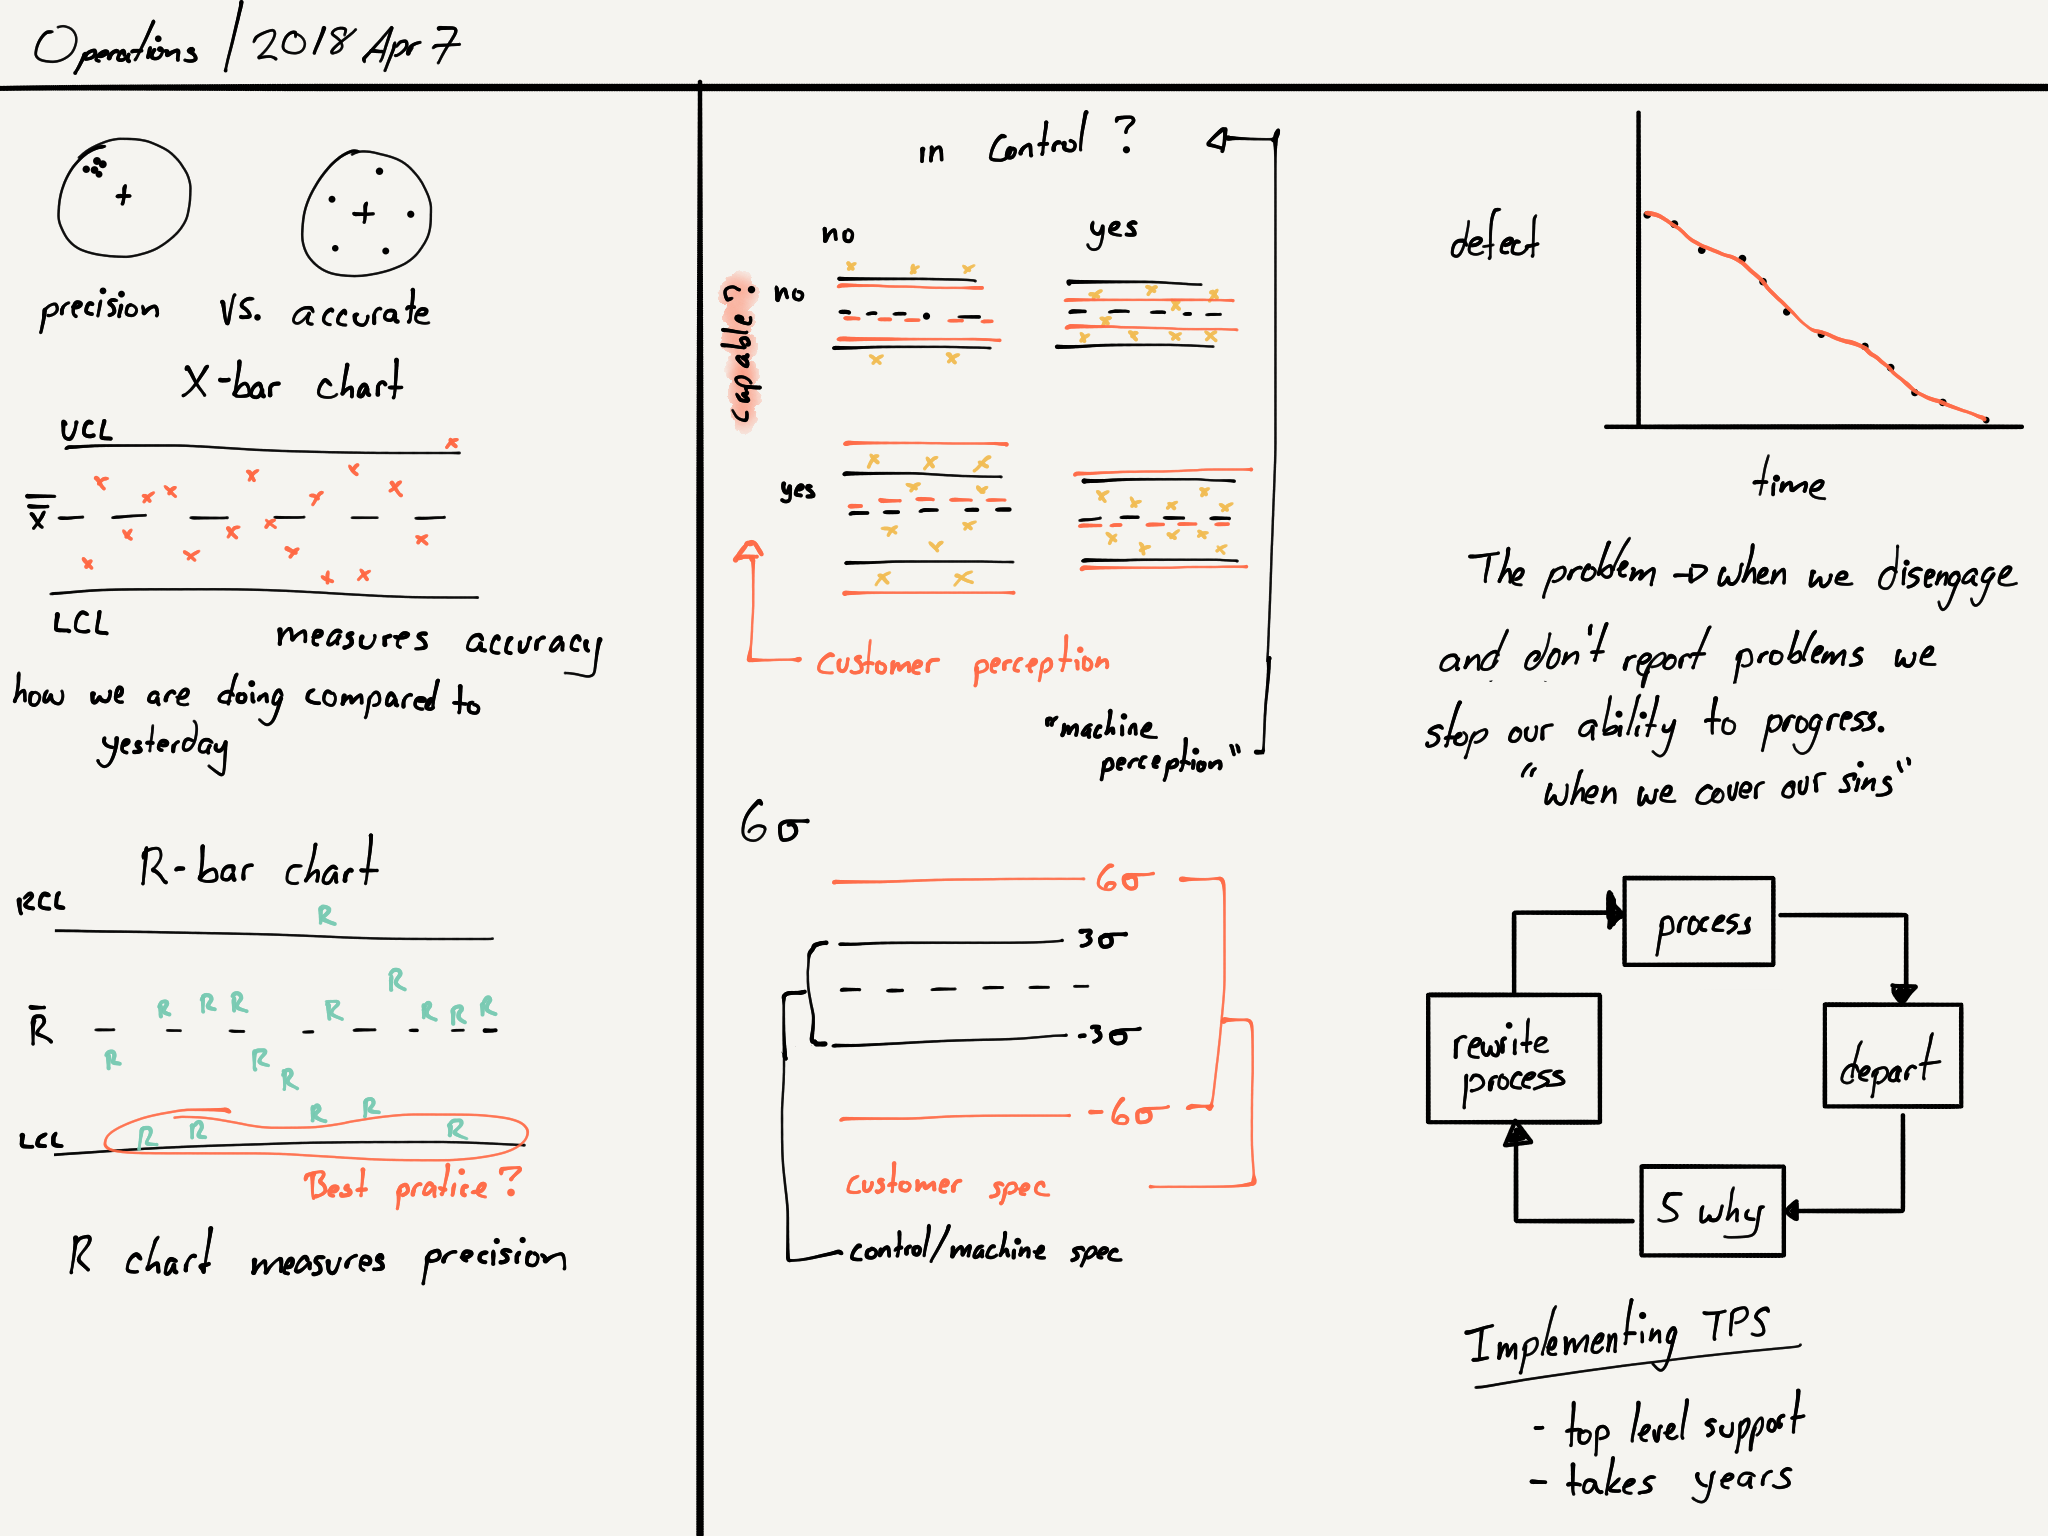 Operations / 2018 Apr 7
precision vs. accurate
X-bar chart
UCL
X
LCL
measures accuracy
how we are doing compared to
yesterday
R-bar chart
RCL
R
R
R R R R R R R R
R R R R R
R R R
LCL
Best pratice?
R chart measures precision
in control?
no yes
capable?
no
yes
customer perception
"machine
perception"
6σ
6σ
3σ
-3σ
-6σ
customer spec
control/machine spec
defect
time
The problem → when we disengage
and don't report problems we
stop our ability to progress.
"when we cover our sins"
process
depart
5 why
rewrite
process
Implementing TPS
- top level support
- takes years